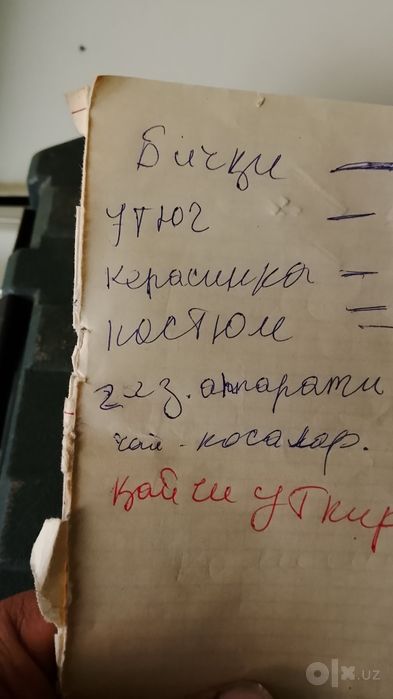 Бички —
утюг —
керасинка —
костюм —
газ. аппарати
чай - косалар.
қайчи уткир
olx.uz